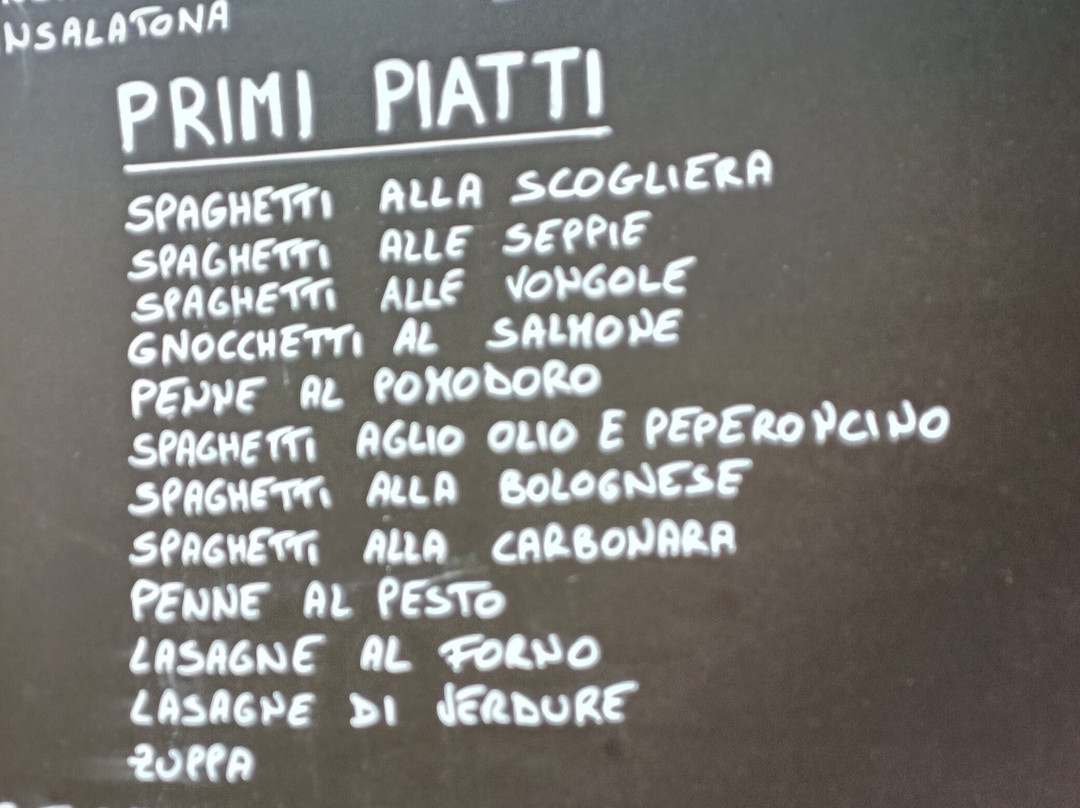 NSALATONA
PRIMI PIATTI
SPAGHETTI ALLA SCOGLIERA
SPAGHETTI ALLE SEPPIE
SPAGHETTI ALLE VONGOLE
GNOCCHETTI AL SALMONE
PENNE AL POMODORO
SPAGHETTI AGLIO OLIO E PEPERONCINO
SPAGHETTI ALLA BOLOGNESE
SPAGHETTI ALLA CARBONARA
PENNE AL PESTO
LASAGNE AL FORNO
LASAGNE DI VERDURE
ZUPPA